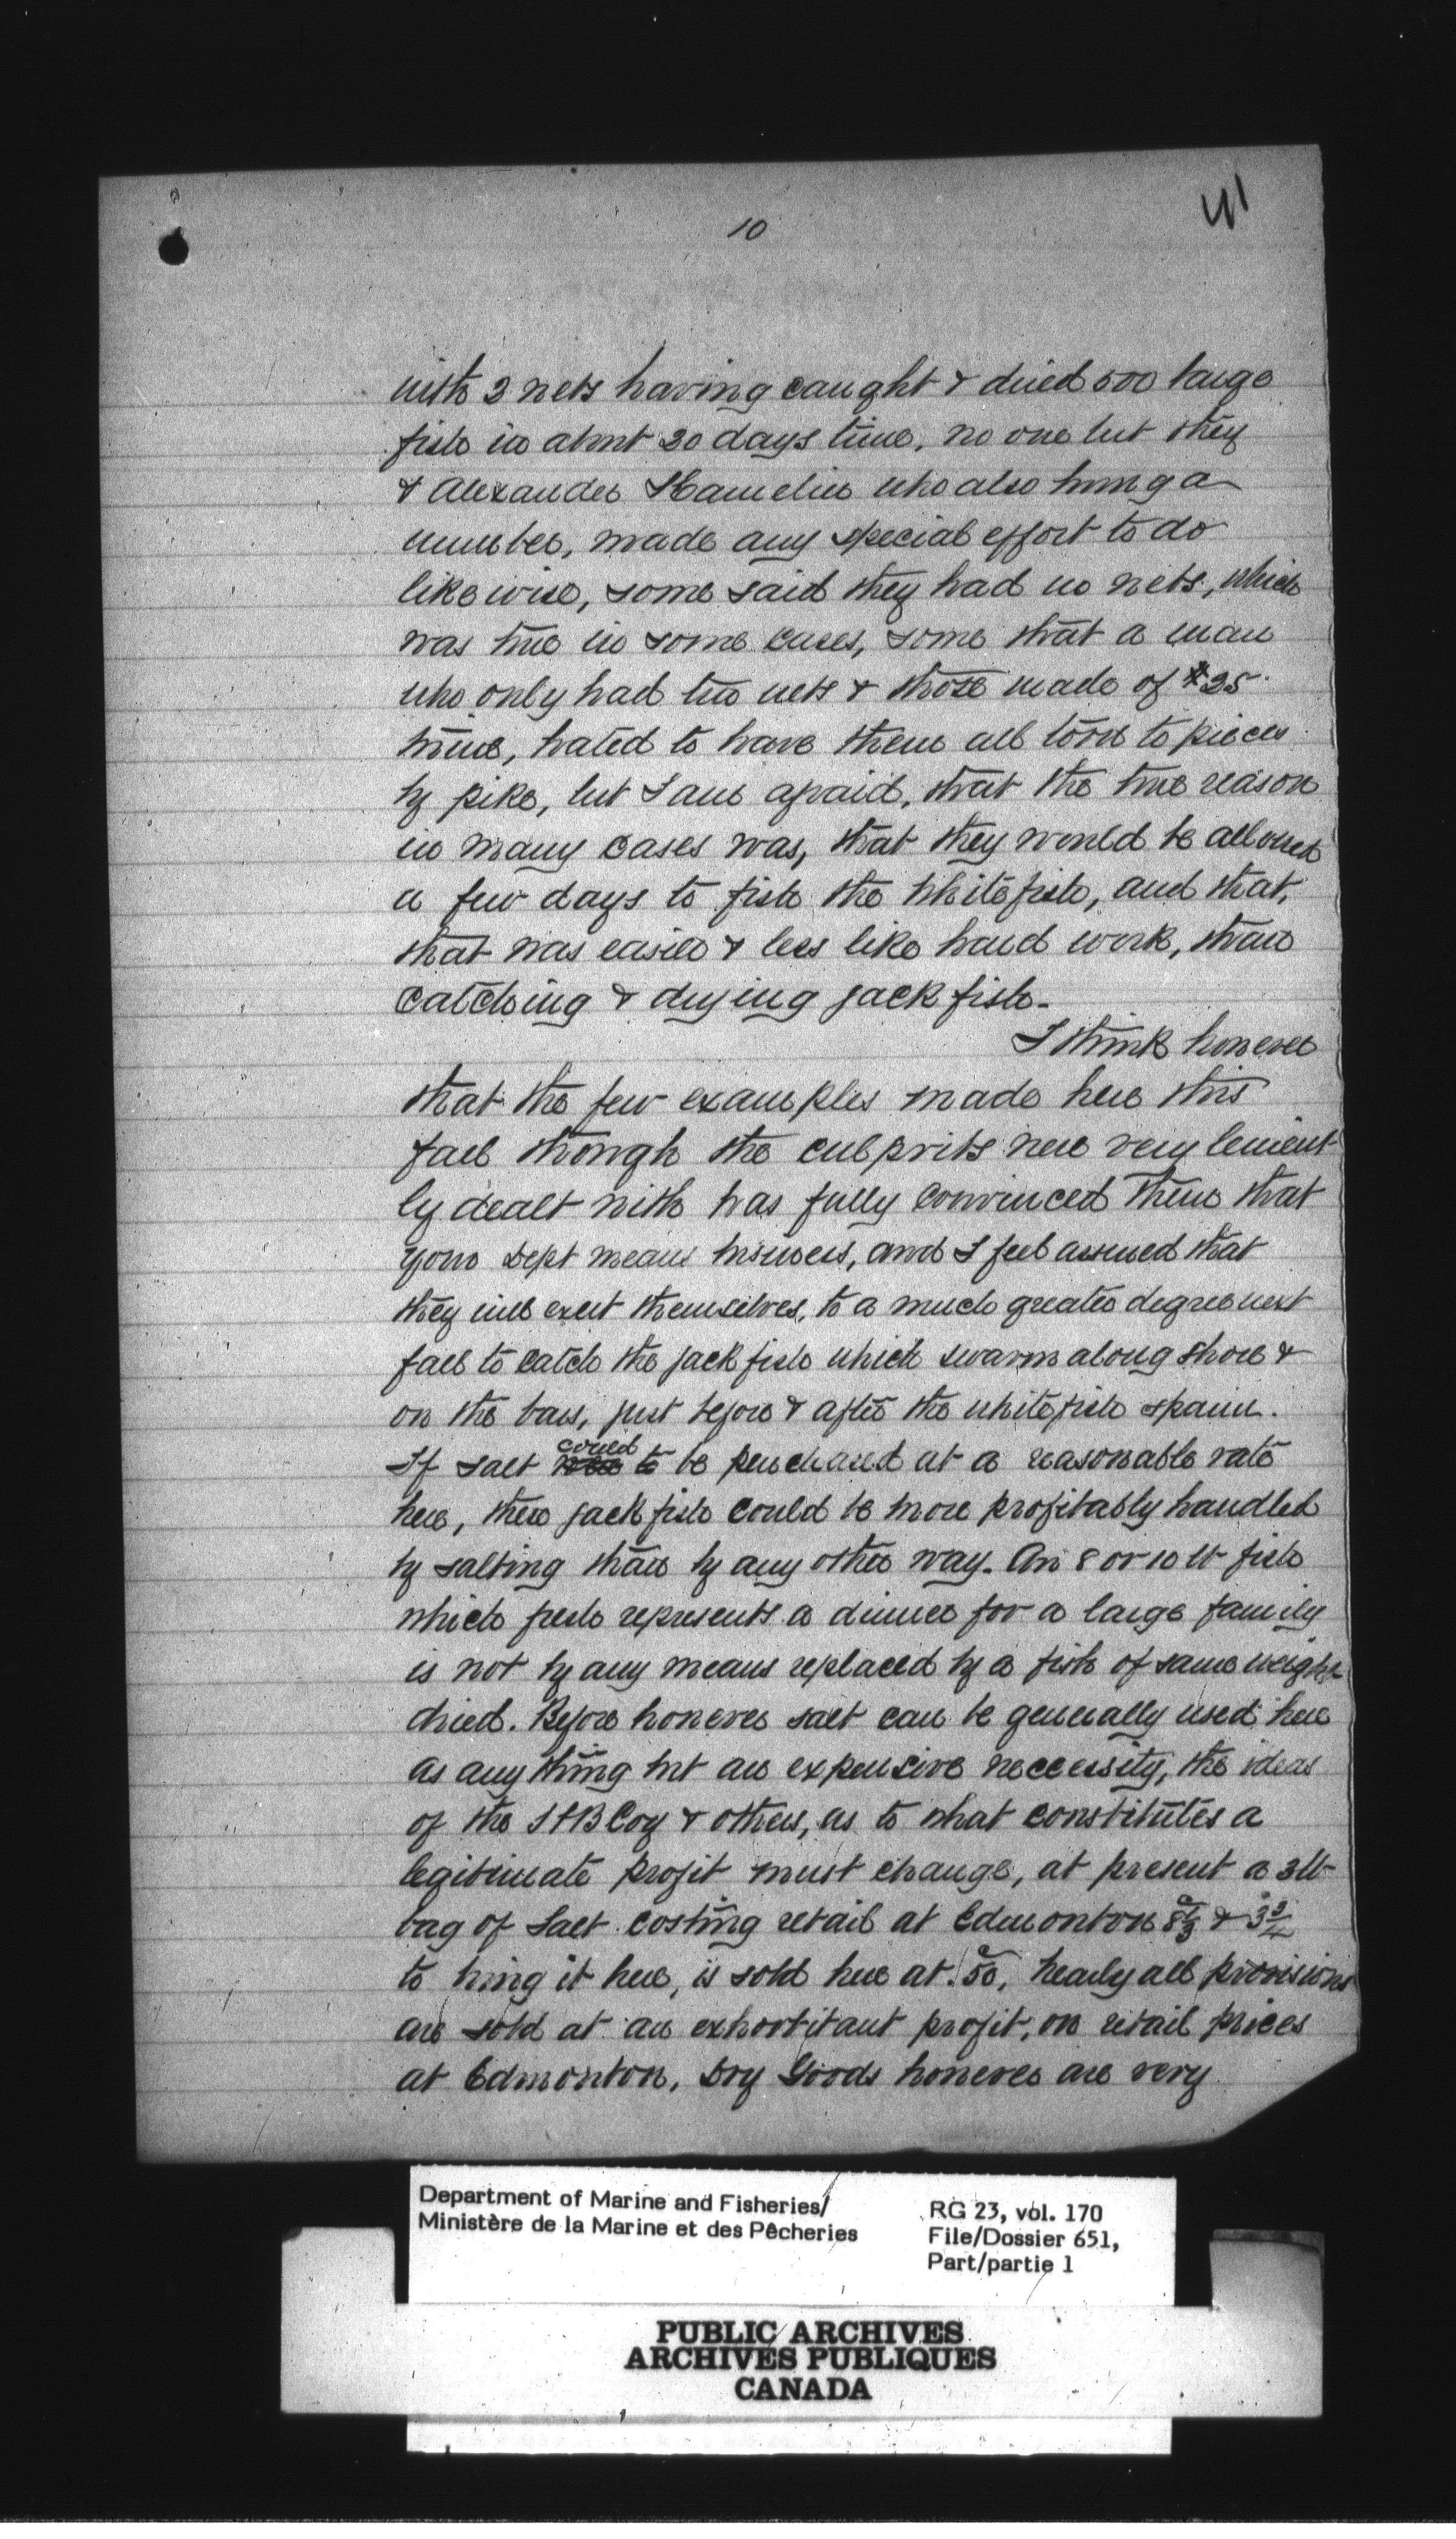 10
41
with 3 nets having caught & dried 500 large
fish in about 20 days time, no one but they
& Alexander Hamelin who also hung a
number, made any special effort to do
likewise, some said they had no nets, which
was true in some cases, some that a man
who only had two nets & those made of #25
twine, hated to have them all torn to pieces
by pike, but I am afraid, that the true reason
in many cases was, that they would be allowed
a few days to fish the whitefish, and that,
that was easier & less like hard work, than
catching & drying jack fish -
I think however
that the few examples made here this
fall though the culprits were very lenient-
ly dealt with has fully convinced them that
your Dept means business, and I feel assured that
they will exert themselves, to a much greater degree next
fall to catch the jack fish which swarm along shore &
on the bars, just before & after the whitefish spawn.
could
If salt to be purchased at a reasonable rate
here, these jack fish could be more profitably handled
by salting than by any other way. An 8 or 10 lb fish
which fresh represents a dinner for a large family
is not by any means replaced by a fish of same weight
dried. Before however salt can be generally used here
as anything but an expensive neccessity, the ideas
of the HB Coy & others, as to what constitutes a
legitimate profit must change, at present a 3 lb
bag of Salt costing retail at Edmonton &
to bring it here, is sold here at .50c, nearly all provisions
are sold at an exhorbitant profit, on retail prices
at Edmonton, Dry Goods however are very
Department of Marine and Fisheries/
Ministère de la Marine et des Pêcheries
RG 23, vol. 170
File/Dossier 651,
Part/partie 1
PUBLIC ARCHIVES
ARCHIVES PUBLIQUES
CANADA